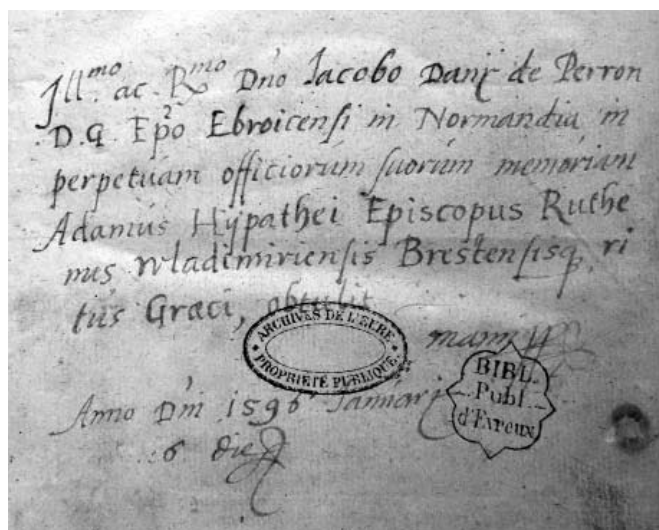 Jll.mo ac R.mo Dno Iacobo Dauÿ de Perron
D.G. Epõ Ebroicensi in Normandia in
perpetuam officiorum suorum memoriam
Adamus Hypathei Episcopus Ruthe
nus Wladimiriensis Brestensisq, ri
tus Græci, obtulit
ARCHIVES DE L'EURE
PROPRIÉTÉ PUBLIQUE.
BIBL.
Publ
d'Evreux
Anno Dni 1596 Ianuarÿ
6 die